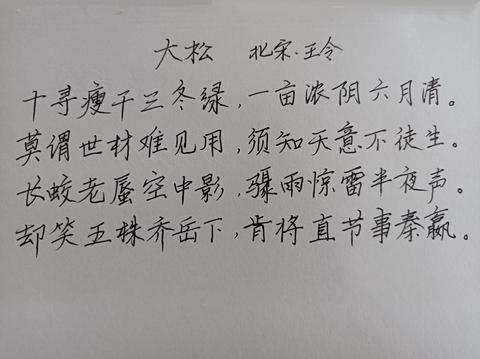 大松 北宋·王令
十寻瘦干三冬绿，一亩浓阴六月清。
莫谓世材难见用，须知天意不徒生。
长蛟老蜃空中影，骤雨惊雷半夜声。
却笑五株乔岳下，肯将直节事秦嬴。